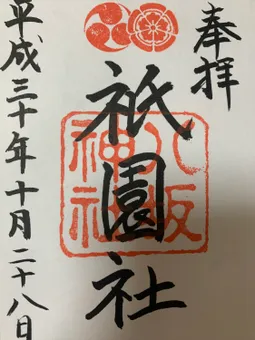 奉拝
祇園社
八坂神社
平成三十年十月二十八日